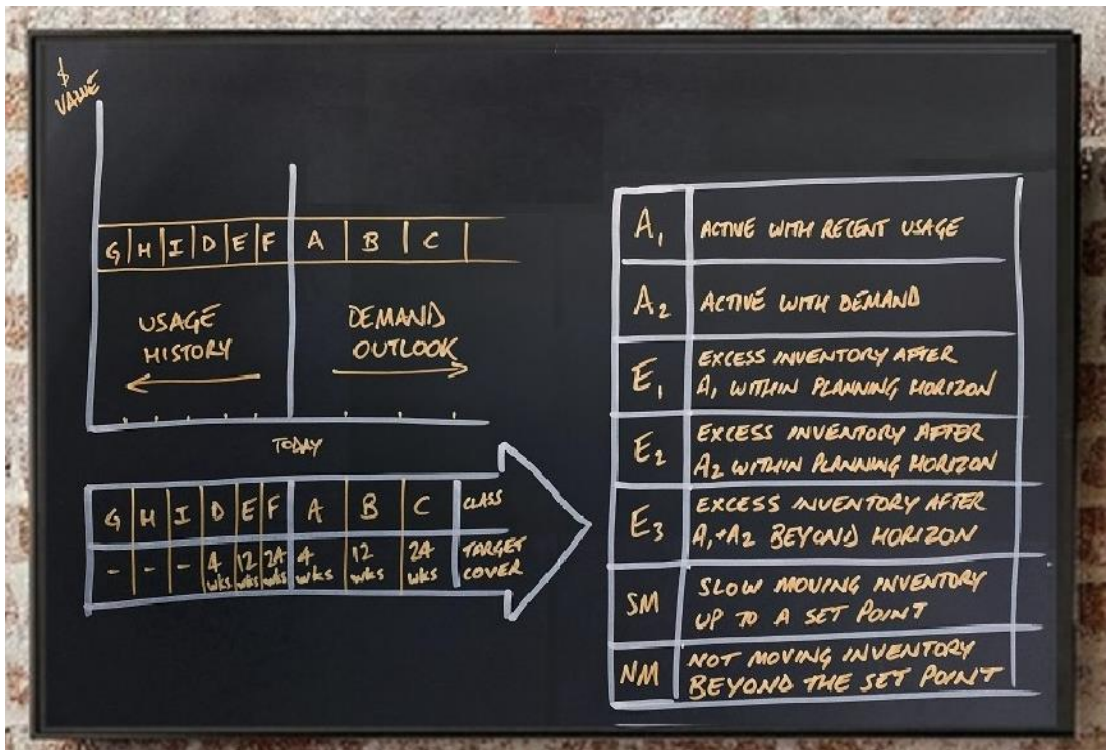 $
VALUE
G H I D E F A B C
USAGE
HISTORY
DEMAND
OUTLOOK
TODAY
G H I D E F A B C CLASS
- - - 4 wks 12 wks 24 wks 4 wks 12 wks 24 wks TARGET COVER
A1 ACTIVE WITH RECENT USAGE
A2 ACTIVE WITH DEMAND
E1 EXCESS INVENTORY AFTER
A1 WITHIN PLANNING HORIZON
E2 EXCESS INVENTORY AFTER
A2 WITHIN PLANNING HORIZON
E3 EXCESS INVENTORY AFTER
A1+A2 BEYOND HORIZON
SM SLOW MOVING INVENTORY
UP TO A SET POINT
NM NOT MOVING INVENTORY
BEYOND THE SET POINT